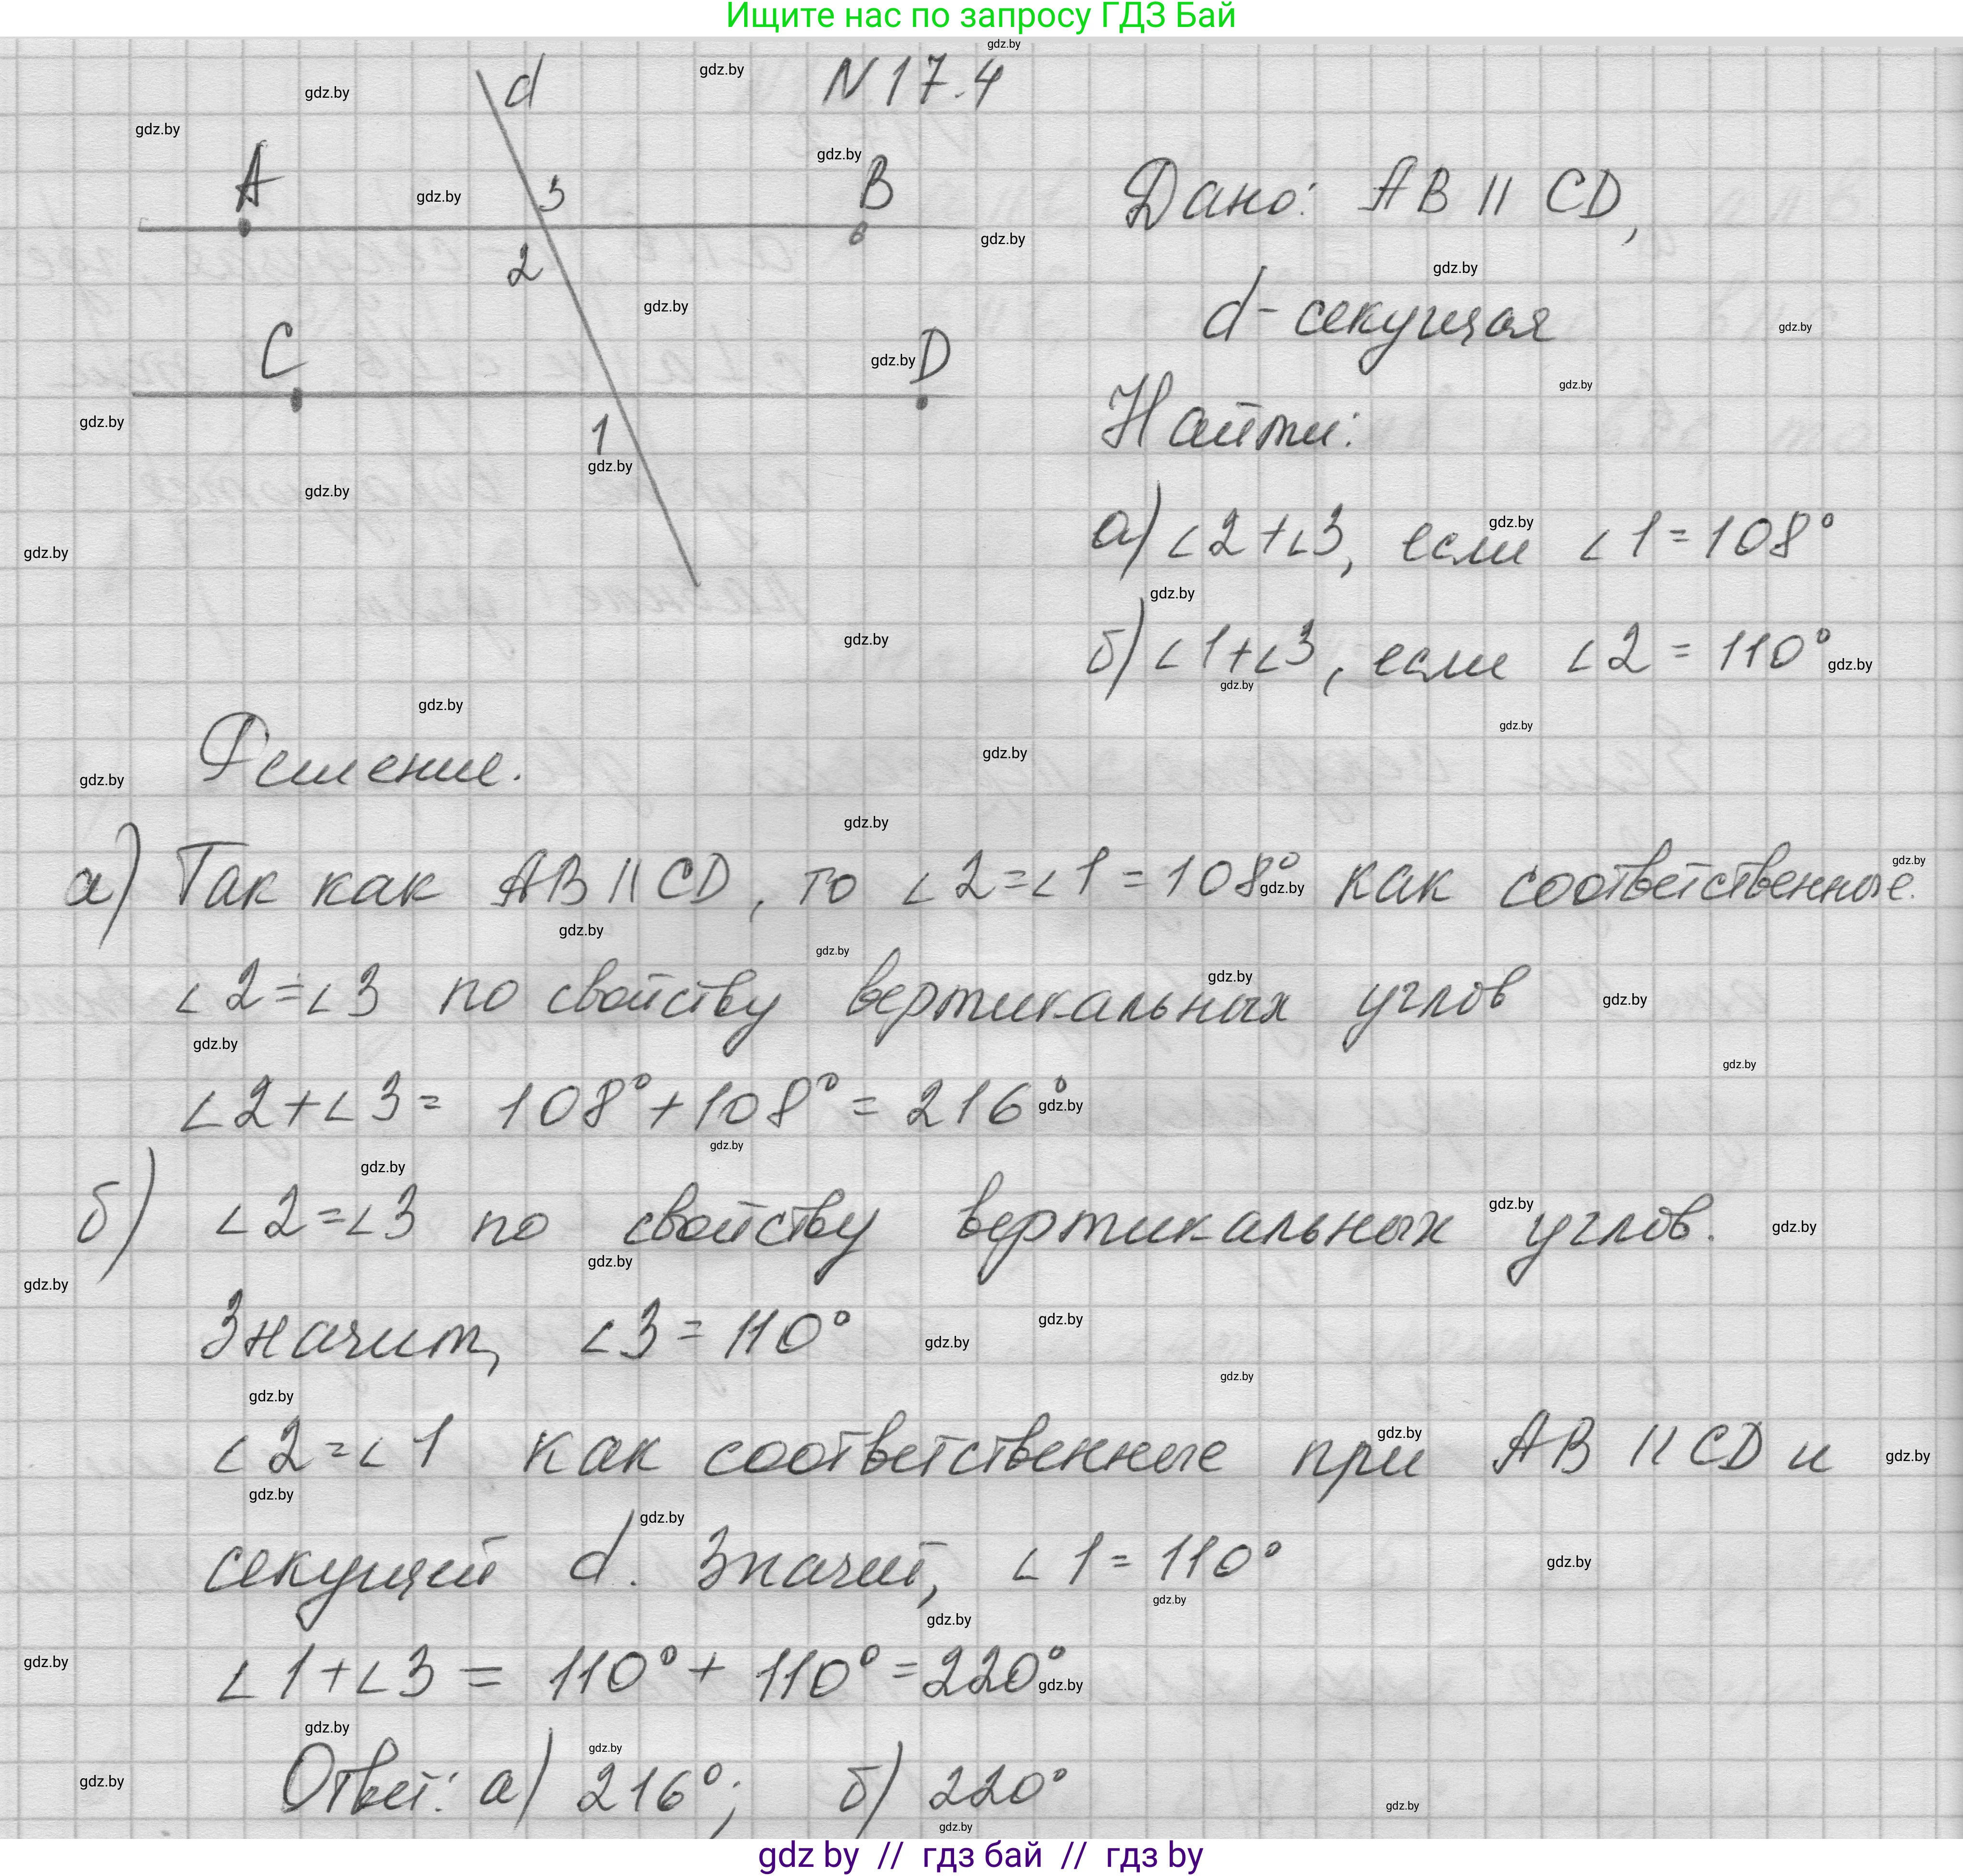 Ищите нас по запросу ГДЗ Бай
N 17.4
d
A
3
B
2
C
D
1
Дано: AB || CD,
d - секущая
Найти:
а) ∠2+∠3, если ∠1=108°
б) ∠1+∠3, если ∠2 = 110°
Решение.
а) Так как AB || CD, то ∠2=∠1=108° как соответственные.
∠2=∠3 по свойству вертикальных углов
∠2+∠3= 108°+108°= 216°
б) ∠2=∠3 по свойству вертикальных углов.
Значит, ∠3 = 110°
∠2=∠1 как соответственные при AB || CD и
секущей d. Значит, ∠1= 110°
∠1+∠3 = 110°+ 110°=220°
Ответ: а) 216°; б) 220°
gdz.by
gdz by // гдз бай // гдз by